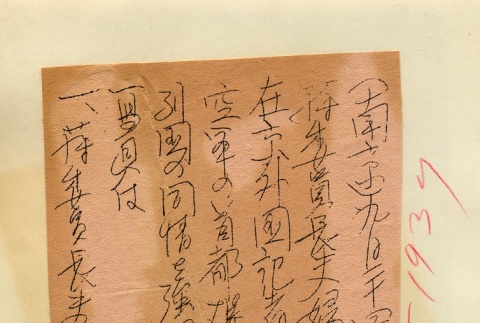 (南京九日二十四
蒋委員長夫婦
在京外国記者
空軍の首都爆
列国の同情を強
写真は
一、蒋委員長夫
1937